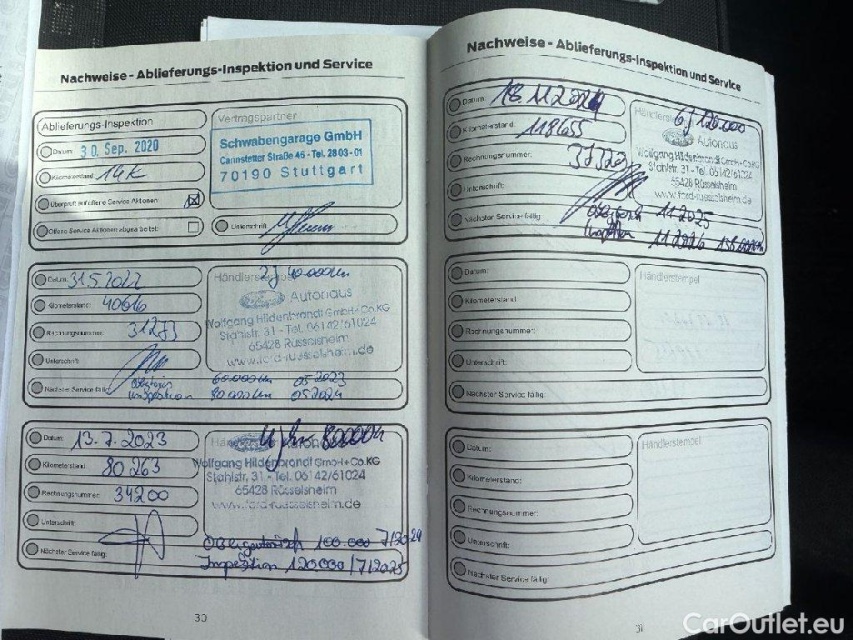 Nachweise - Ablieferungs-Inspektion und Service
Ablieferungs-Inspektion
Datum: 30. Sep. 2020
Kilometerstand: 14K
Überprüft auf offene Service Aktionen
Offene Service Aktionen abgearbeitet:
Vertragspartner
Schwabengarage GmbH
Cannstatter Straße 46 - Tel. 2803-01
70190 Stuttgart
Unterschrift:
Datum: 31.5.2022
Kilometerstand: 40616
Rechnungsnummer: 31273
Unterschrift:
Nächster Service fällig: 60.000km 05.2023
Inspektion 80.000km 05.2024
Händlerstempel 2J 40.000km
Autohaus
Wolfgang Hildenbrandt GmbH+Co.KG
Stahlstr. 31 - Tel. 06142/61024
65428 Rüsselsheim
www.ford-ruesselsheim.de
Datum: 13.7.2023
Kilometerstand: 80263
Rechnungsnummer: 34200
Unterschrift:
Nächster Service fällig:
Obligatorisch 100.000 7/2024
Inspektion 120000/7/2025
80000km
Wolfgang Hildenbrandt GmbH+Co.KG
Stahlstr. 31 - Tel. 06142/61024
65428 Rüsselsheim
www.ford-ruesselsheim.de
30
Nachweise - Ablieferungs-Inspektion und Service
Datum: 18.11.2024
Kilometerstand: 118655
Rechnungsnummer:
Unterschrift:
Nächster Service fällig: 11.2025
Inspektion 11.2026
6J 120.000
Autohaus
Wolfgang Hildenbrandt GmbH+Co.KG
Stahlstr. 31 - Tel. 06142/61024
65428 Rüsselsheim
www.ford-ruesselsheim.de
Datum:
Kilometerstand:
Rechnungsnummer:
Unterschrift:
Nächster Service fällig:
Händlerstempel
Datum:
Kilometerstand:
Rechnungsnummer:
Unterschrift:
Nächster Service fällig:
Händlerstempel
31
CarOutlet.eu